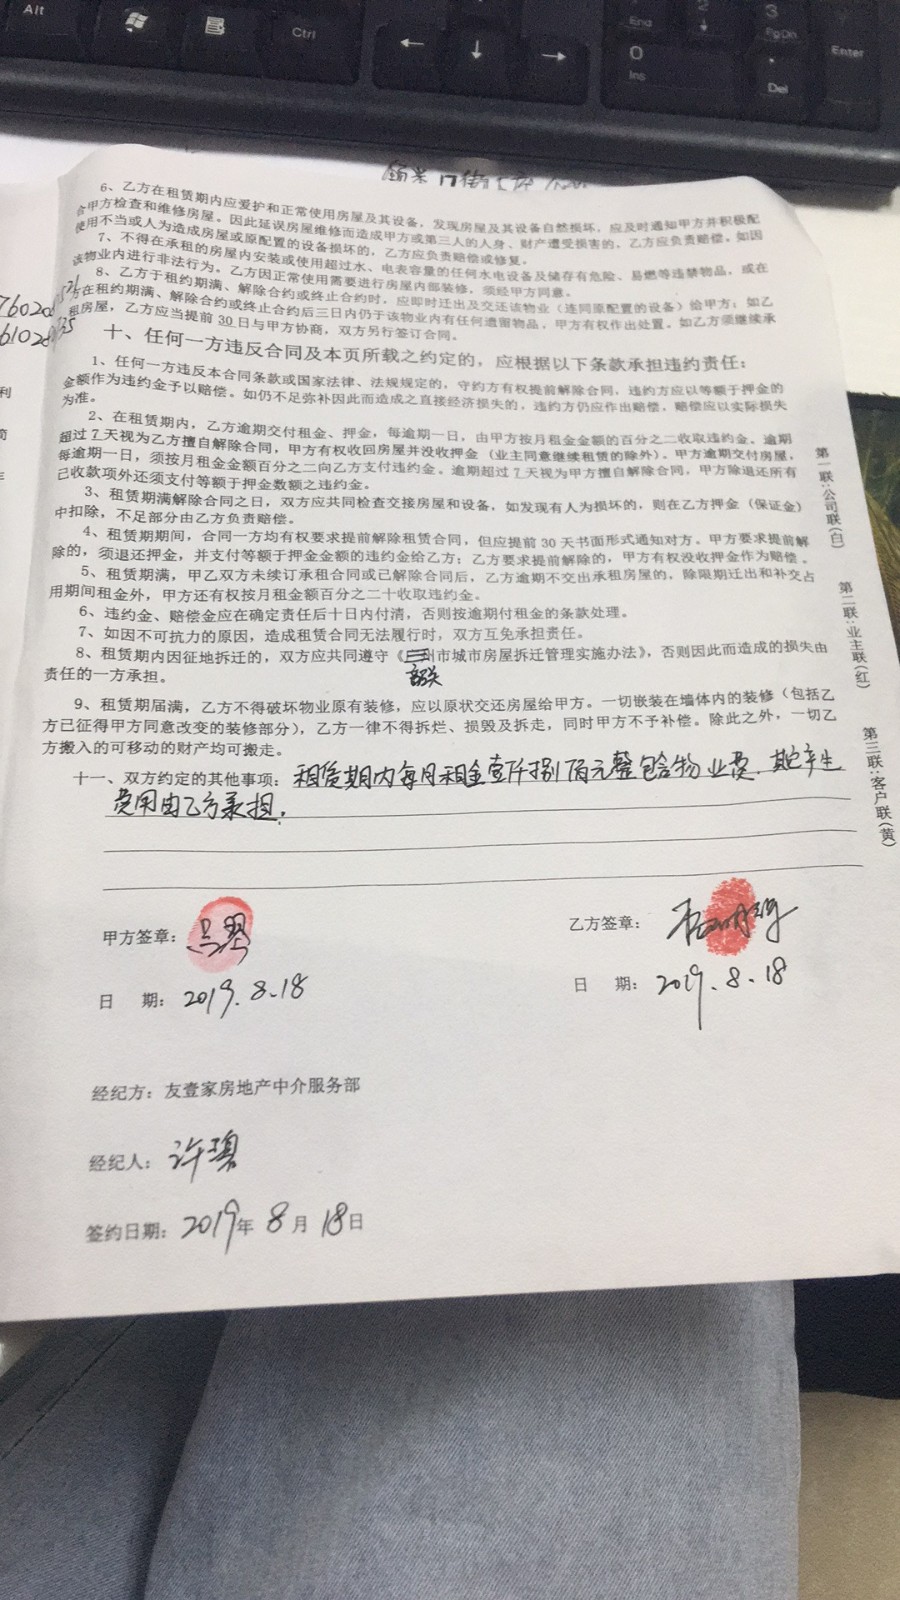 Alt
Ctrl
End
2
3
PgDn
0
Ins
.
Del
Enter
6、乙方在租赁期内应爱护和正常使用房屋及其设备，发现房屋及其设备自然损坏，应及时通知甲方并积极配
合甲方检查和维修房屋。因此延误房屋维修而造成甲方或第三人的人身、财产遭受损害的，乙方应负责赔偿。如因
使用不当或人为造成房屋或原配置的设备损坏的，乙方应负责赔偿或修复。
7、不得在承租的房屋内安装或使用超过水、电表容量的任何水电设备及储存有危险、易燃等违禁物品，或在
该物业内进行非法行为。乙方因正常使用需要进行房屋内部装修，须经甲方同意。
8、乙方于租约期满、解除合约或终止合约时，应即时迁出及交还该物业（连同原配置的设备）给甲方；如乙
方在租约期满、解除合约或终止合约后三日内仍于该物业内有任何遗留物品，甲方有权作出处置。如乙方须继续承
租房屋，乙方应当提前30日与甲方协商，双方另行签订合同。
十、任何一方违反合同及本页所载之约定的，应根据以下条款承担违约责任：
1、任何一方违反本合同条款或国家法律、法规规定的，守约方有权提前解除合同，违约方应以等额于押金的
金额作为违约金予以赔偿。如仍不足弥补因此而造成之直接经济损失的，违约方仍应作出赔偿，赔偿应以实际损失
为准。
2、在租赁期内，乙方逾期交付租金、押金，每逾期一日，由甲方按月租金金额的百分之二收取违约金。逾期
超过7天视为乙方擅自解除合同，甲方有权收回房屋并没收押金（业主同意继续租赁的除外）。甲方逾期交付房屋，
每逾期一日，须按月租金金额百分之二向乙方支付违约金。逾期超过7天视为甲方擅自解除合同，甲方除退还所有
已收款项外还须支付等额于押金数额之违约金。
3、租赁期满解除合同之日，双方应共同检查交接房屋和设备，如发现有人为损坏的，则在乙方押金（保证金）
中扣除，不足部分由乙方负责赔偿。
4、租赁期期间，合同一方均有权要求提前解除租赁合同，但应提前30天书面形式通知对方。甲方要求提前解
除的，须退还押金，并支付等额于押金金额的违约金给乙方；乙方要求提前解除的，甲方有权没收押金作为赔偿。
5、租赁期满，甲乙双方未续订承租合同或已解除合同后，乙方逾期不交出承租房屋的，除限期迁出和补交占
用期间租金外，甲方还有权按月租金额百分之二十收取违约金。
6、违约金、赔偿金应在确定责任后十日内付清，否则按逾期付租金的条款处理。
7、如因不可抗力的原因，造成租赁合同无法履行时，双方互免承担责任。
8、租赁期内因征地拆迁的，双方应共同遵守《州市城市房屋拆迁管理实施办法》，否则因此而造成的损失由
韶关
责任的一方承担。
9、租赁期届满，乙方不得破坏物业原有装修，应以原状交还房屋给甲方。一切嵌装在墙体内的装修（包括乙
方已征得甲方同意改变的装修部分），乙方一律不得拆烂、损毁及拆走，同时甲方不予补偿。除此之外，一切乙
方搬入的可移动的财产均可搬走。
十一、双方约定的其他事项：租赁期内每月租金壹仟捌佰元整包含物业费，其它产生
费用由乙方承担。
甲方签章：
日 期：2019.8.18
乙方签章：
日 期：2019.8.18
经纪方：友壹家房地产中介服务部
经纪人：许瑰
签约日期：2019年8月18日
第一联：公司联（白）
第二联：业主联（红）
第三联：客户联（黄）